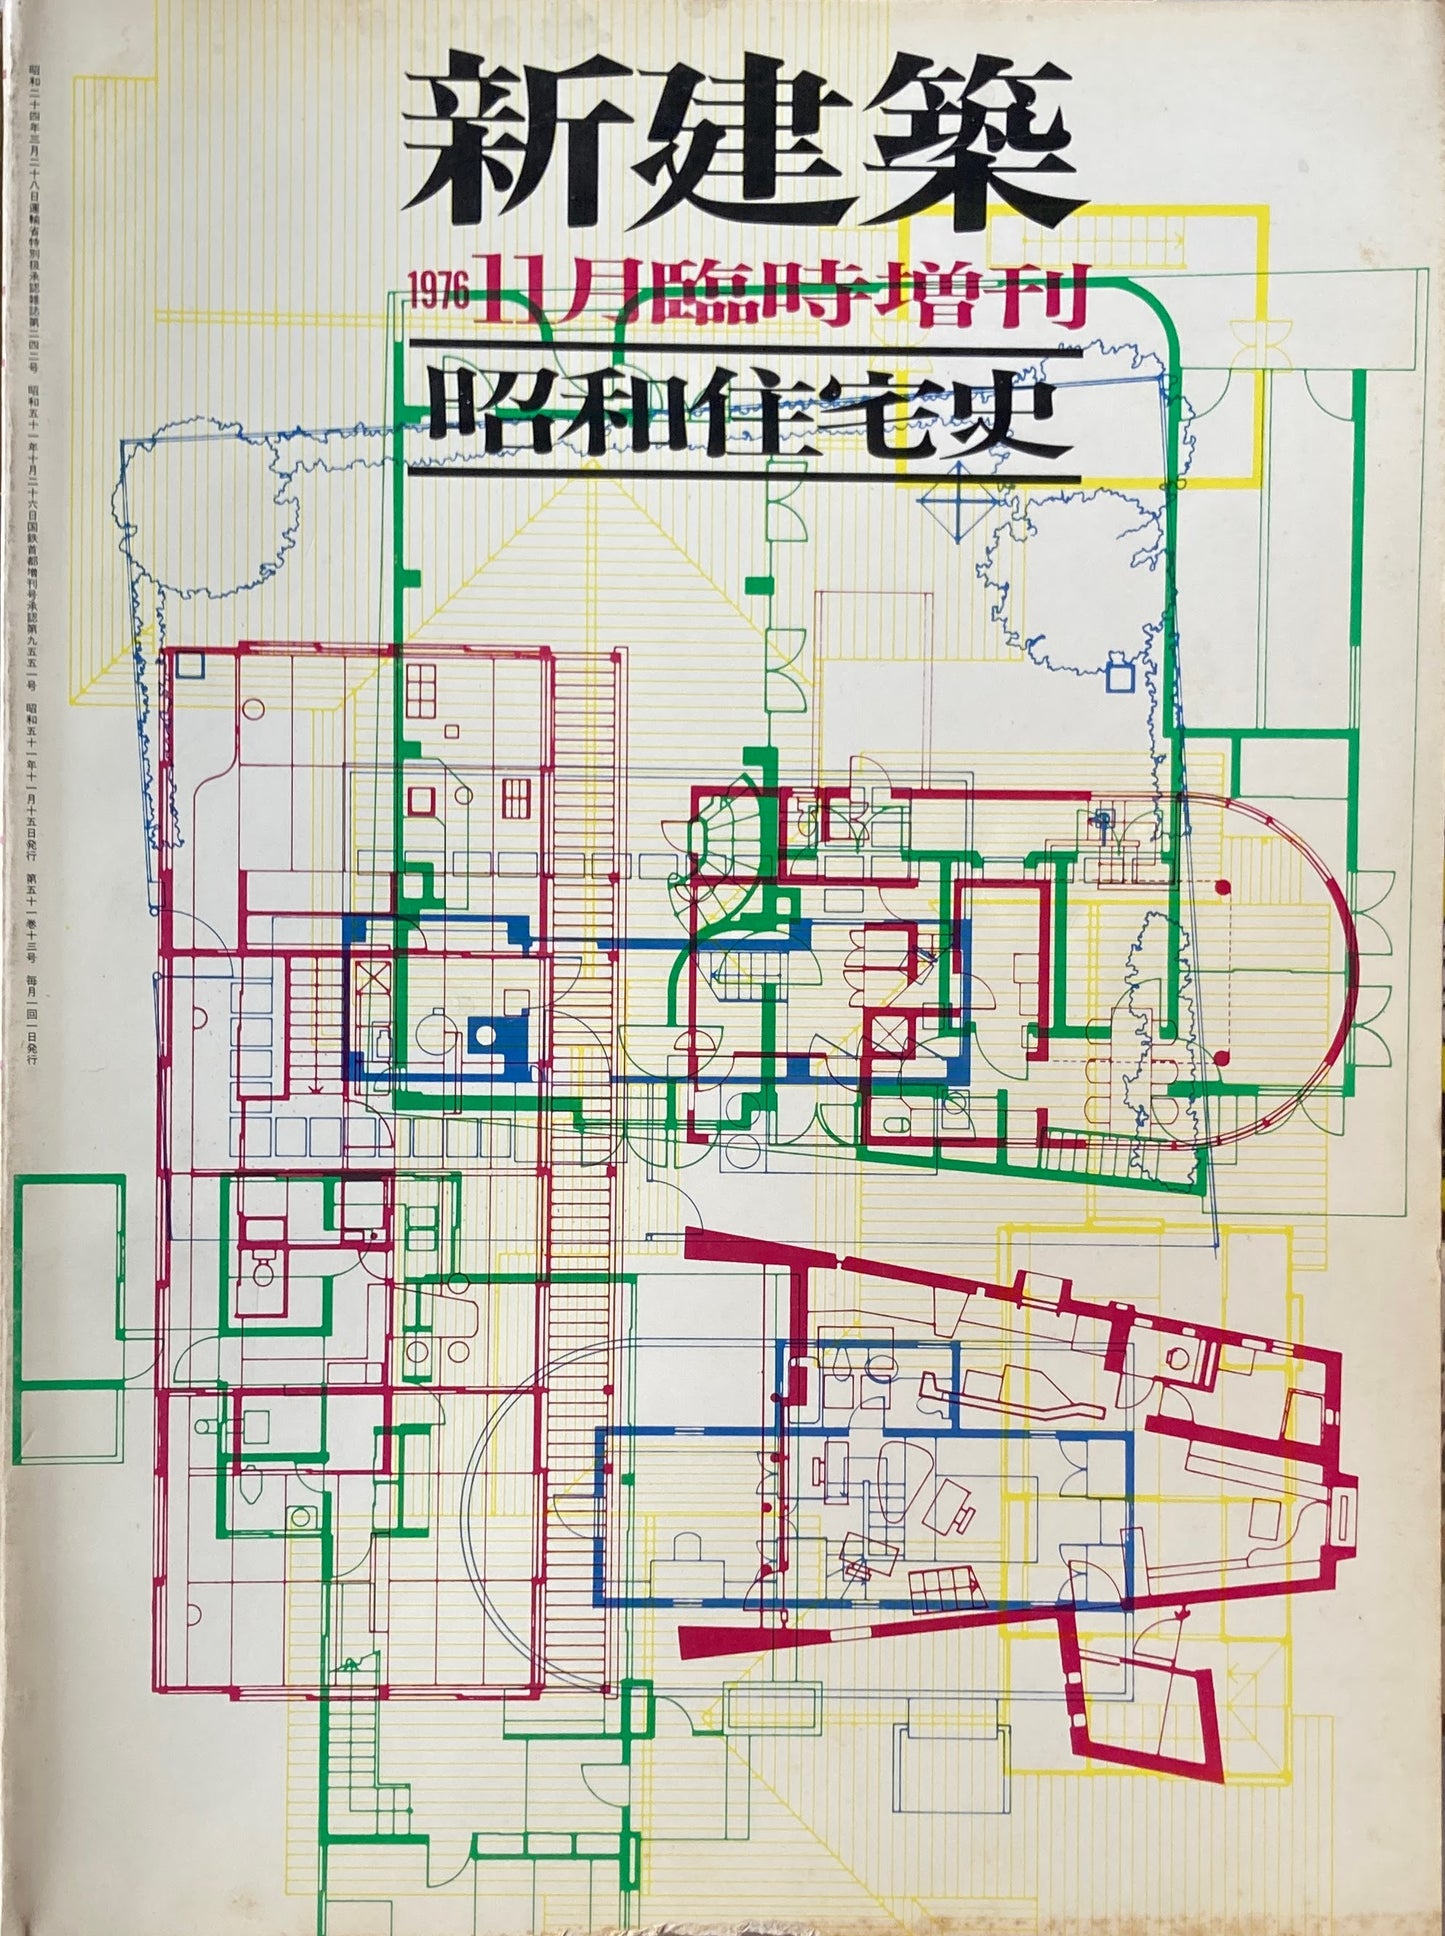 新建築
1976 11月臨時増刊
昭和住宅史
昭和二十四年三月二十八日運輸省特別扱承認雑誌第二四二号　昭和五十一年十月二十六日国鉄首都増刊号承認第九五五一号　昭和五十一年十一月十五日発行　第五十一巻十三号　毎月一回一日発行